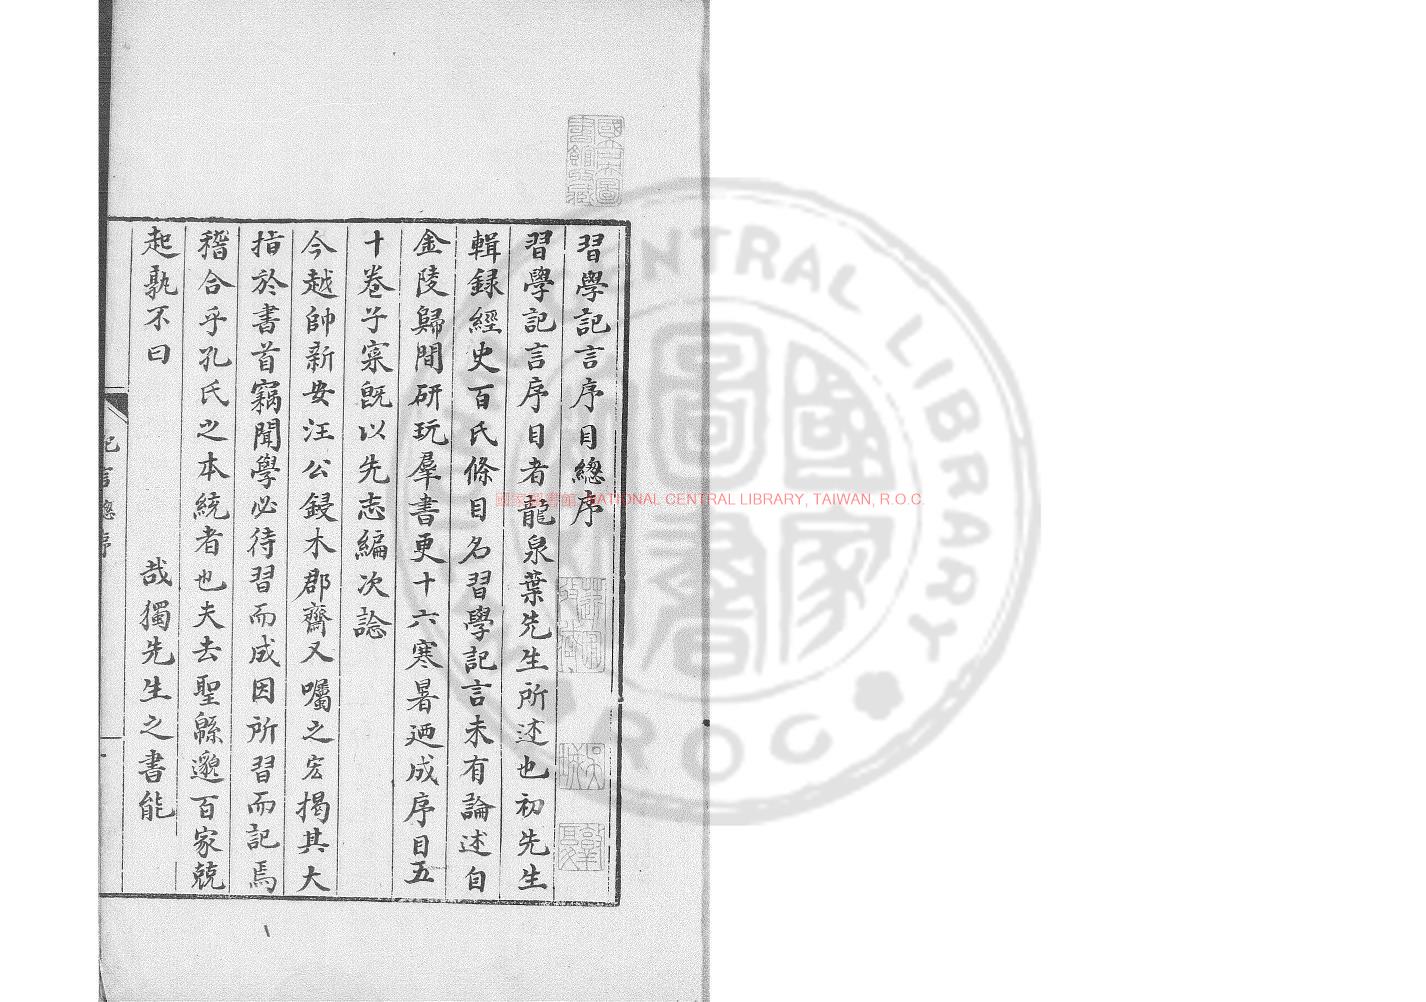 習學記言序目總序
習學記言序目者龍泉葉先生所述也初先生
輯録經史百氏條目名習學記言未有論述自
金陵歸間研玩羣書更十六寒暑迺成序目五
十卷子寀旣以先志編次諗
今越帥新安汪公鋟木郡齋又囑之宏揭其大
指於書首竊聞學必待習而成因所習而記焉
稽合乎孔氏之本統者也夫去聖緜邈百家兢
起孰不曰　　　哉獨先生之書能
記言總序
國家圖書館藏
國家圖書館 NATIONAL CENTRAL LIBRARY, TAIWAN, R.O.C.
CENTRAL LIBRARY
ROC